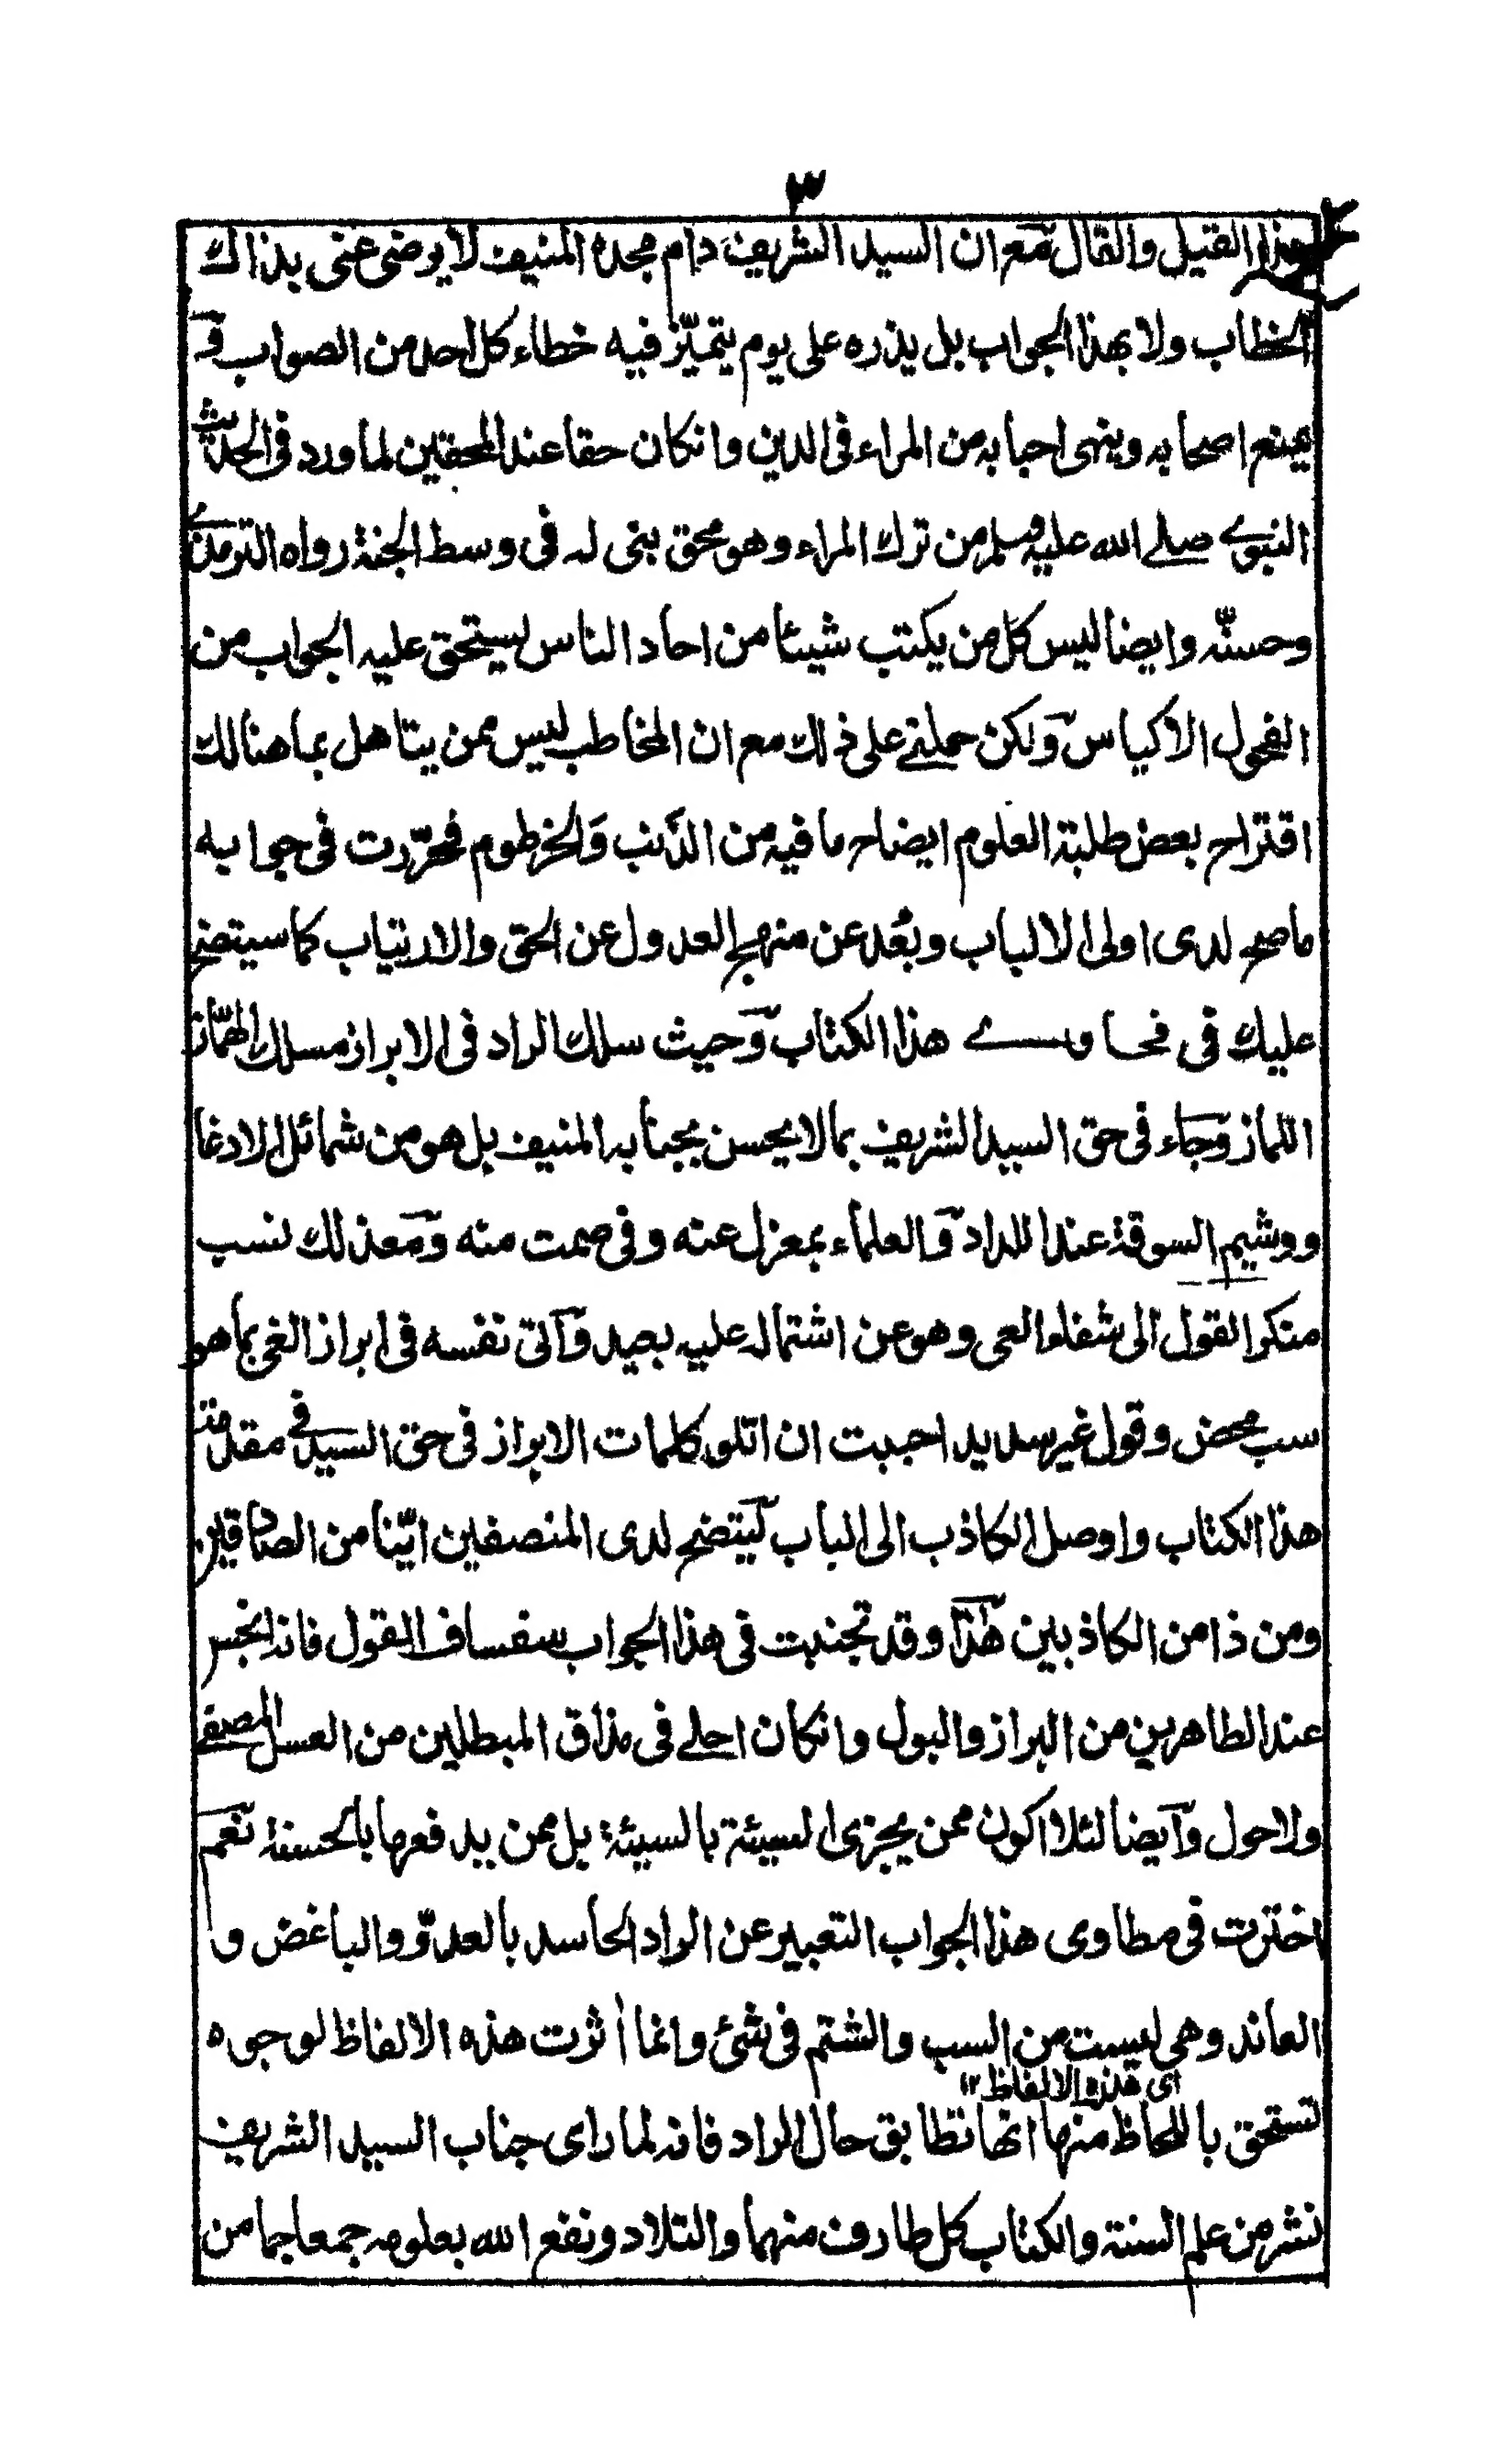 ٣
هذا القيل والقال مع ان السيد الشريف دام مجده المنيف لا يرضى عنى بذاك
الخطاب ولا بهذا الجواب بل يذره على يوم يتميّز فيه خطاء كل احد من الصواب و
يمنع اصحابه وينهى احبابه من المراء فى الدين وانكان حقا عند المحقين لما ورد فى الحديث
النبوے صلے الله عليه وسلم من ترك المراء وهو محق بنى له فى وسط الجنة رواه الترمذے
وحسنّه وايضا ليس كل من يكتب شيئا من احاد الناس يستحق عليه الجواب من
الفحول الاكياس ولكن حملنے على ذلك مع ان المخاطب ليس ممن يتاهل بما هنالك
اقتراح بعض طلبة العلوم ايضاح ما فيه من الذنب والخرطوم فحرّرت فى جوابه
ما صح لدى اولى الالباب وبعُد عن منهج العدول عن الحق والارتياب كما سيتضح
عليك فى فحاوے هذا الكتاب وحيث سلك الراد فى الابراز مسلك الهمّاز
اللماز وجاء فى حق السيد الشريف بما لا يحسن بجنابه المنيف بل هو من شمائل الادغا
ووشيم السوقة عند اللداد والعلماء بمعزل عنه وفى صمت منه ومع ذلك نسب
منكر القول الى شفاء العى وهو عن اشتماله عليه بعيد وآتى نفسه فى ابراز الغى بما هو
سب محض وقول غير سديد احببت ان اتلو كلمات الابراز فى حق السيد فے مقدمة
هذا الكتاب واوصل الكاذب الى الباب ليتضح لدى المنصفين ايّنا من الصادقين
ومن ذا من الكاذبين هذا وقد تجنبت فى هذا الجواب سفساف القول فانه انجس
عند الطاهرين من البراز والبول وانكان احلے فى مذاق المبطلين من العسل المصفے
ولا حول وايضا لئلا اكون ممن يجزى السيئة بالسيئة بل ممن يدفعها بالحسنة نعم
اخترت فى مطاوى هذا الجواب التعبير عن الراد الحاسد بالعدوّ والباغض و
العاند وهى ليست من السب والشتم فى شئ وانما أثرت هذه الالفاظ لوجوه
اى هذه الالفاظ ١٢
تستحق باللحاظ منها انها تطابق حال الراد فانه لما راى جناب السيد الشريف
نشر من علم السنة والكتاب كل طارف منهما والتلاد ونفع الله بعلومه جمعا جما من